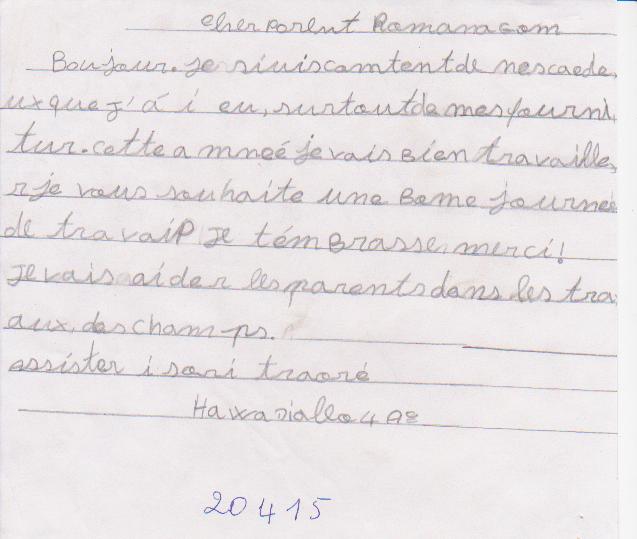 cher parent Romanacom
Boujour. je siuis comtent de mes caede,
ux que j'á i eu, surtout de mes fourni,
tur. cette a mneé je vais Bien travaille,
r je vous souhaite une Bome journeé
de travail je t'émBrasse, merci!
je vais aider les parents dans les tra
aux, des champs.
assister i sari traoré
Hawa Diallo 4 Ae
20415